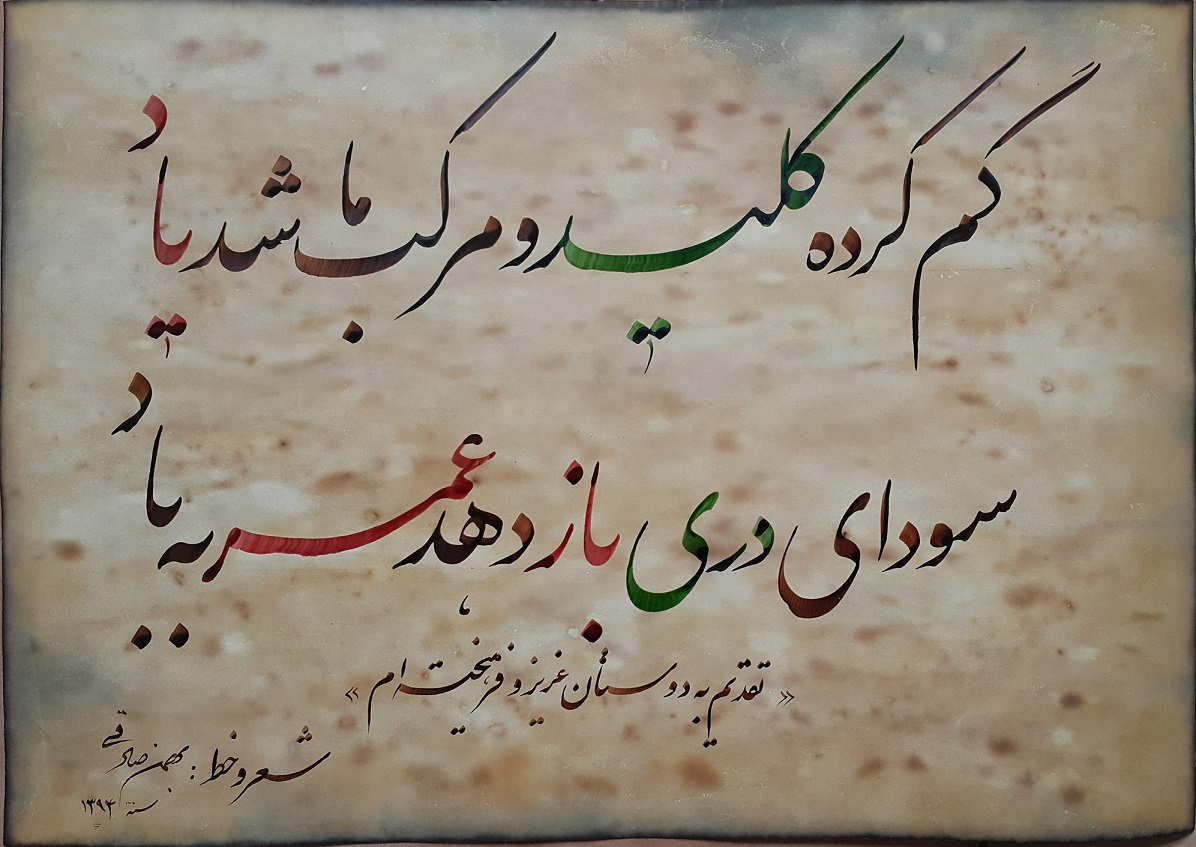 گم کرده کلید و مرکب ما شد یاد
سودای دری باز دهد عمر به یاد
« تقدیم به دوستان عزیز و فرهیخته ام »
شعر و خط : بهمن صادقی
سنة ۱۳۹۴